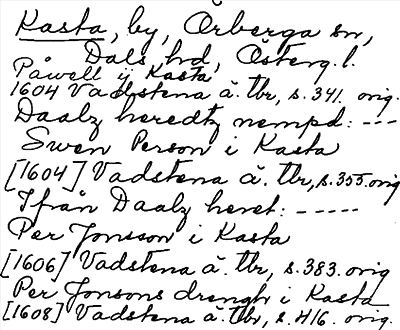 Kasta, by, Örberga sn,
Dals hd, Österg. l.
Påwell ij Kasta
1604 Vadstena ä. tbr, s. 341. orig.
Daalz heredtz nempd: ---
Swen Person i Kasta
[1604] Vadstena ä. tbr, s. 355. orig
Ifrån Daalz heret: -----
Per Jonsson i Kasta
[1606] Vadstena ä. tbr, s. 383. orig
Per Jonsons drengh i Kasta
[1608] Vadstena ä. tbr, s. 416. orig.